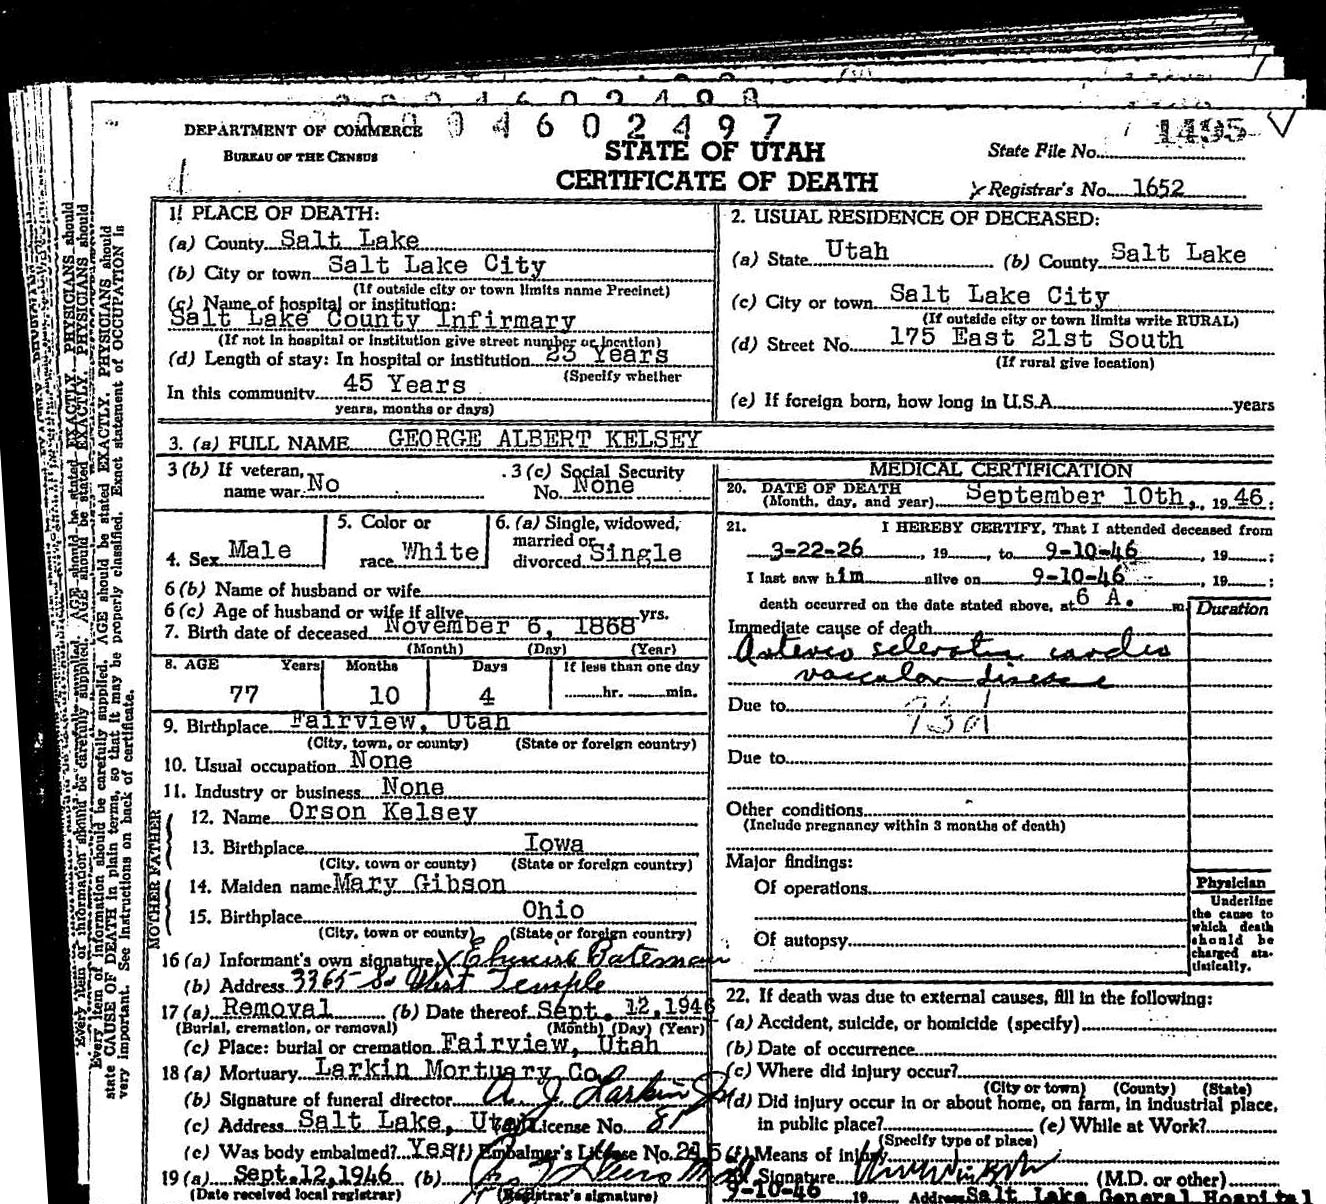 0 4 6 0 2 4 9 7
DEPARTMENT OF COMMERCE
BUREAU OF THE CENSUS
STATE OF UTAH
CERTIFICATE OF DEATH
State File No. 1495
Registrar's No. 1652
1. PLACE OF DEATH:
(a) County Salt Lake
(b) City or town Salt Lake City
(If outside city or town limits name Precinct)
(c) Name of hospital or institution:
Salt Lake County Infirmary
(If not in hospital or institution give street number or location)
(d) Length of stay: In hospital or institution 23 Years
(Specify whether
In this community 45 Years
years, months or days)
2. USUAL RESIDENCE OF DECEASED:
(a) State Utah (b) County Salt Lake
(c) City or town Salt Lake City
(If outside city or town limits write RURAL)
(d) Street No. 175 East 21st South
(If rural give location)
(e) If foreign born, how long in U.S.A. years
3. (a) FULL NAME GEORGE ALBERT KELSEY
3 (b) If veteran, name war No
3 (c) Social Security No. None
4. Sex Male
5. Color or race White
6. (a) Single, widowed, married or divorced Single
6 (b) Name of husband or wife
6 (c) Age of husband or wife if alive yrs.
7. Birth date of deceased November 6, 1868
(Month) (Day) (Year)
8. AGE Years Months Days If less than one day
77 10 4 hr. min.
9. Birthplace Fairview, Utah
(City, town, or county) (State or foreign country)
10. Usual occupation None
11. Industry or business None
FATHER
12. Name Orson Kelsey
13. Birthplace Iowa
(City, town or county) (State or foreign country)
MOTHER
14. Maiden name Mary Gibson
15. Birthplace Ohio
(City, town or county) (State or foreign country)
16 (a) Informant's own signature Bateman
(b) Address 3365 So West Temple
17 (a) Removal (b) Date thereof Sept. 12, 1946
(Burial, cremation, or removal) (Month) (Day) (Year)
(c) Place: burial or cremation Fairview, Utah
18 (a) Mortuary Larkin Mortuary Co.
(b) Signature of funeral director A. J. Larkin Jr
(c) Address Salt Lake, Utah License No. 81
(e) Was body embalmed? Yes (f) Embalmer's License No. 215
19 (a) Sept. 12, 1946 (b)
(Date received local registrar) (Registrar's signature)
MEDICAL CERTIFICATION
20. DATE OF DEATH
(Month, day, and year) September 10th, 1946
21. I HEREBY CERTIFY, That I attended deceased from
3-22-26, 19 , to 9-10-46, 19 ;
I last saw him alive on 9-10-46, 19 ;
death occurred on the date stated above, at 6 A. m.
Duration
Immediate cause of death
Arterio sclerotic cardio
vascular disease
Due to 93d
Due to
Other conditions
(Include pregnancy within 3 months of death)
Major findings:
Of operations
Of autopsy
Physician
Underline
the cause to
which death
should be
charged sta-
tistically.
22. If death was due to external causes, fill in the following:
(a) Accident, suicide, or homicide (specify)
(b) Date of occurrence
(c) Where did injury occur?
(City or town) (County) (State)
(d) Did injury occur in or about home, on farm, in industrial place,
in public place? (e) While at Work?
(Specify type of place)
(f) Means of injury
Signature (M.D. or other)
9-10-46 19 Address Salt Lake General Hospital
Every item of information should be carefully supplied. AGE should be stated EXACTLY. PHYSICIANS should
state CAUSE OF DEATH in plain terms, so that it may be properly classified. Exact statement of OCCUPATION is
very important. See instructions on back of certificate.